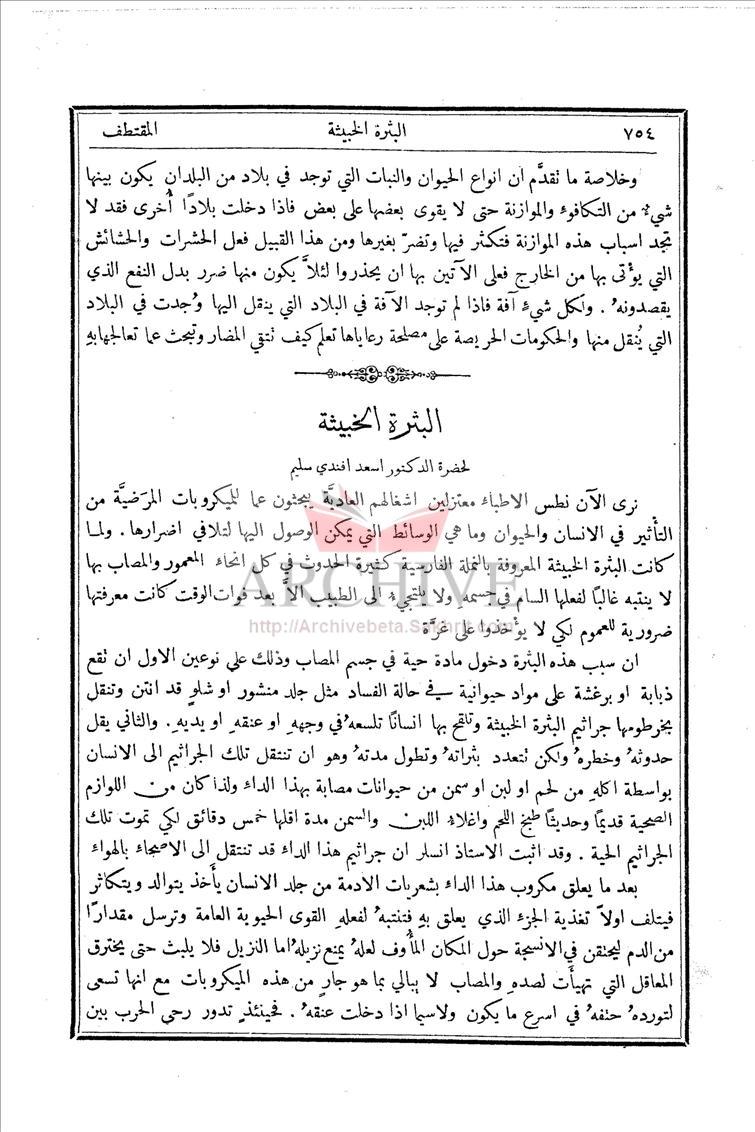 ٧٥٤ البثرة الخبيثة المقتطف
وخلاصة ما تقدَّم ان انواع الحيوان والنبات التي توجد في بلاد من البلدان يكون بينها
شيءٌ من التكافوءِ والموازنة حتى لا يقوى بعضها على بعض فاذا دخلت بلادًا أُخرى فقد لا
تجد اسباب هذه الموازنة فتكثر فيها وتضرّ بغيرها ومن هذا القبيل فعل الحشرات والحشائش
التي يوْتى بها من الخارج فعلى الآتين بها ان يحذروا لئلاَّ يكون منها ضرر بدل النفع الذي
يقصدونهُ . ولكل شيءٍ آفة فاذا لم توجد الآفة في البلاد التي ينقل اليها وُجدت في البلاد
التي يُنقل منها والحكومات الحريصة على مصلحة رعاياها تعلم كيف تتقي المضار وتبحث عما تعالجها بهِ
البثرة الخبيثة
لحضرة الدكتور اسعد افندي سليم
نرى الآن نطس الاطباءِ معتزلين اشغالهم العاديَّة يبحثون عما للميكروبات المرَضيَّة من
التأثير في الانسان والحيوان وما هي الوسائط التي يمكن الوصول اليها لتلافي اضرارها . ولما
كانت البثرة الخبيثة المعروفة بالنملة الفارسية كثيرة الحدوث في كل انحاء المعمور والمصاب بها
لا ينتبه غالبًا لفعلها السام في جسمهِ ولا يلتجيءُ الى الطبيب الاَّ بعد فوات الوقت كانت معرفتها
ضرورية للعموم لكي لا يوْخذوا على غرَّة
ARCHIVE
http://Archivebeta.Sakhrit.com
ان سبب هذه البثرة دخول مادة حية في جسم المصاب وذلك على نوعين الاول ان تقع
ذبابة او برغشة على مواد حيوانية في حالة الفساد مثل جلد منشور او شلوٍ قد انتن وتنقل
بخرطومها جراثيم البثرة الخبيثة وتلقح بها انسانًا تلسعهُ في وجههِ او عنقهِ او يديهِ . والثاني يقل
حدوثهُ وخطرهُ ولكن تتعدد بثراتهُ وتطول مدتهُ وهو ان تنتقل تلك الجراثيم الى الانسان
بواسطة اكلهِ من لحم او لبن او سمن من حيوانات مصابة بهذا الداء ولذا كان من اللوازم
الصحية قديمًا وحديثًا طبخ اللحم واغلاءِ اللبن والسمن مدة اقلها خمس دقائق لكي تموت تلك
الجراثيم الحية . وقد اثبت الاستاذ انسلر ان جراثيم هذا الداء قد تنتقل الى الاصحاءِ بالهواء
بعد ما يعلق مكروب هذا الداء بشعريات الادمة من جلد الانسان يأخذ يتوالد ويتكاثر
فيتلف اولاً تغذية الجزء الذي يعلق بهِ فتنتبهُ لفعلهِ القوى الحيوية العامة وترسل مقدارًا
من الدم ليحتقن في الانسجة حول المكان المأْوف لعلهُ يمنع نزيلهُ اما النزيل فلا يلبث حتى يخترق
المعاقل التي تهيأَت لصدهِ والمصاب لا يبالي بما هو جارٍ من هذه الميكروبات مع انها تسعى
لتوردهُ حتفهُ في اسرع ما يكون ولاسيما اذا دخلت عنقهُ . فحينئذٍ تدور رحى الحرب بين